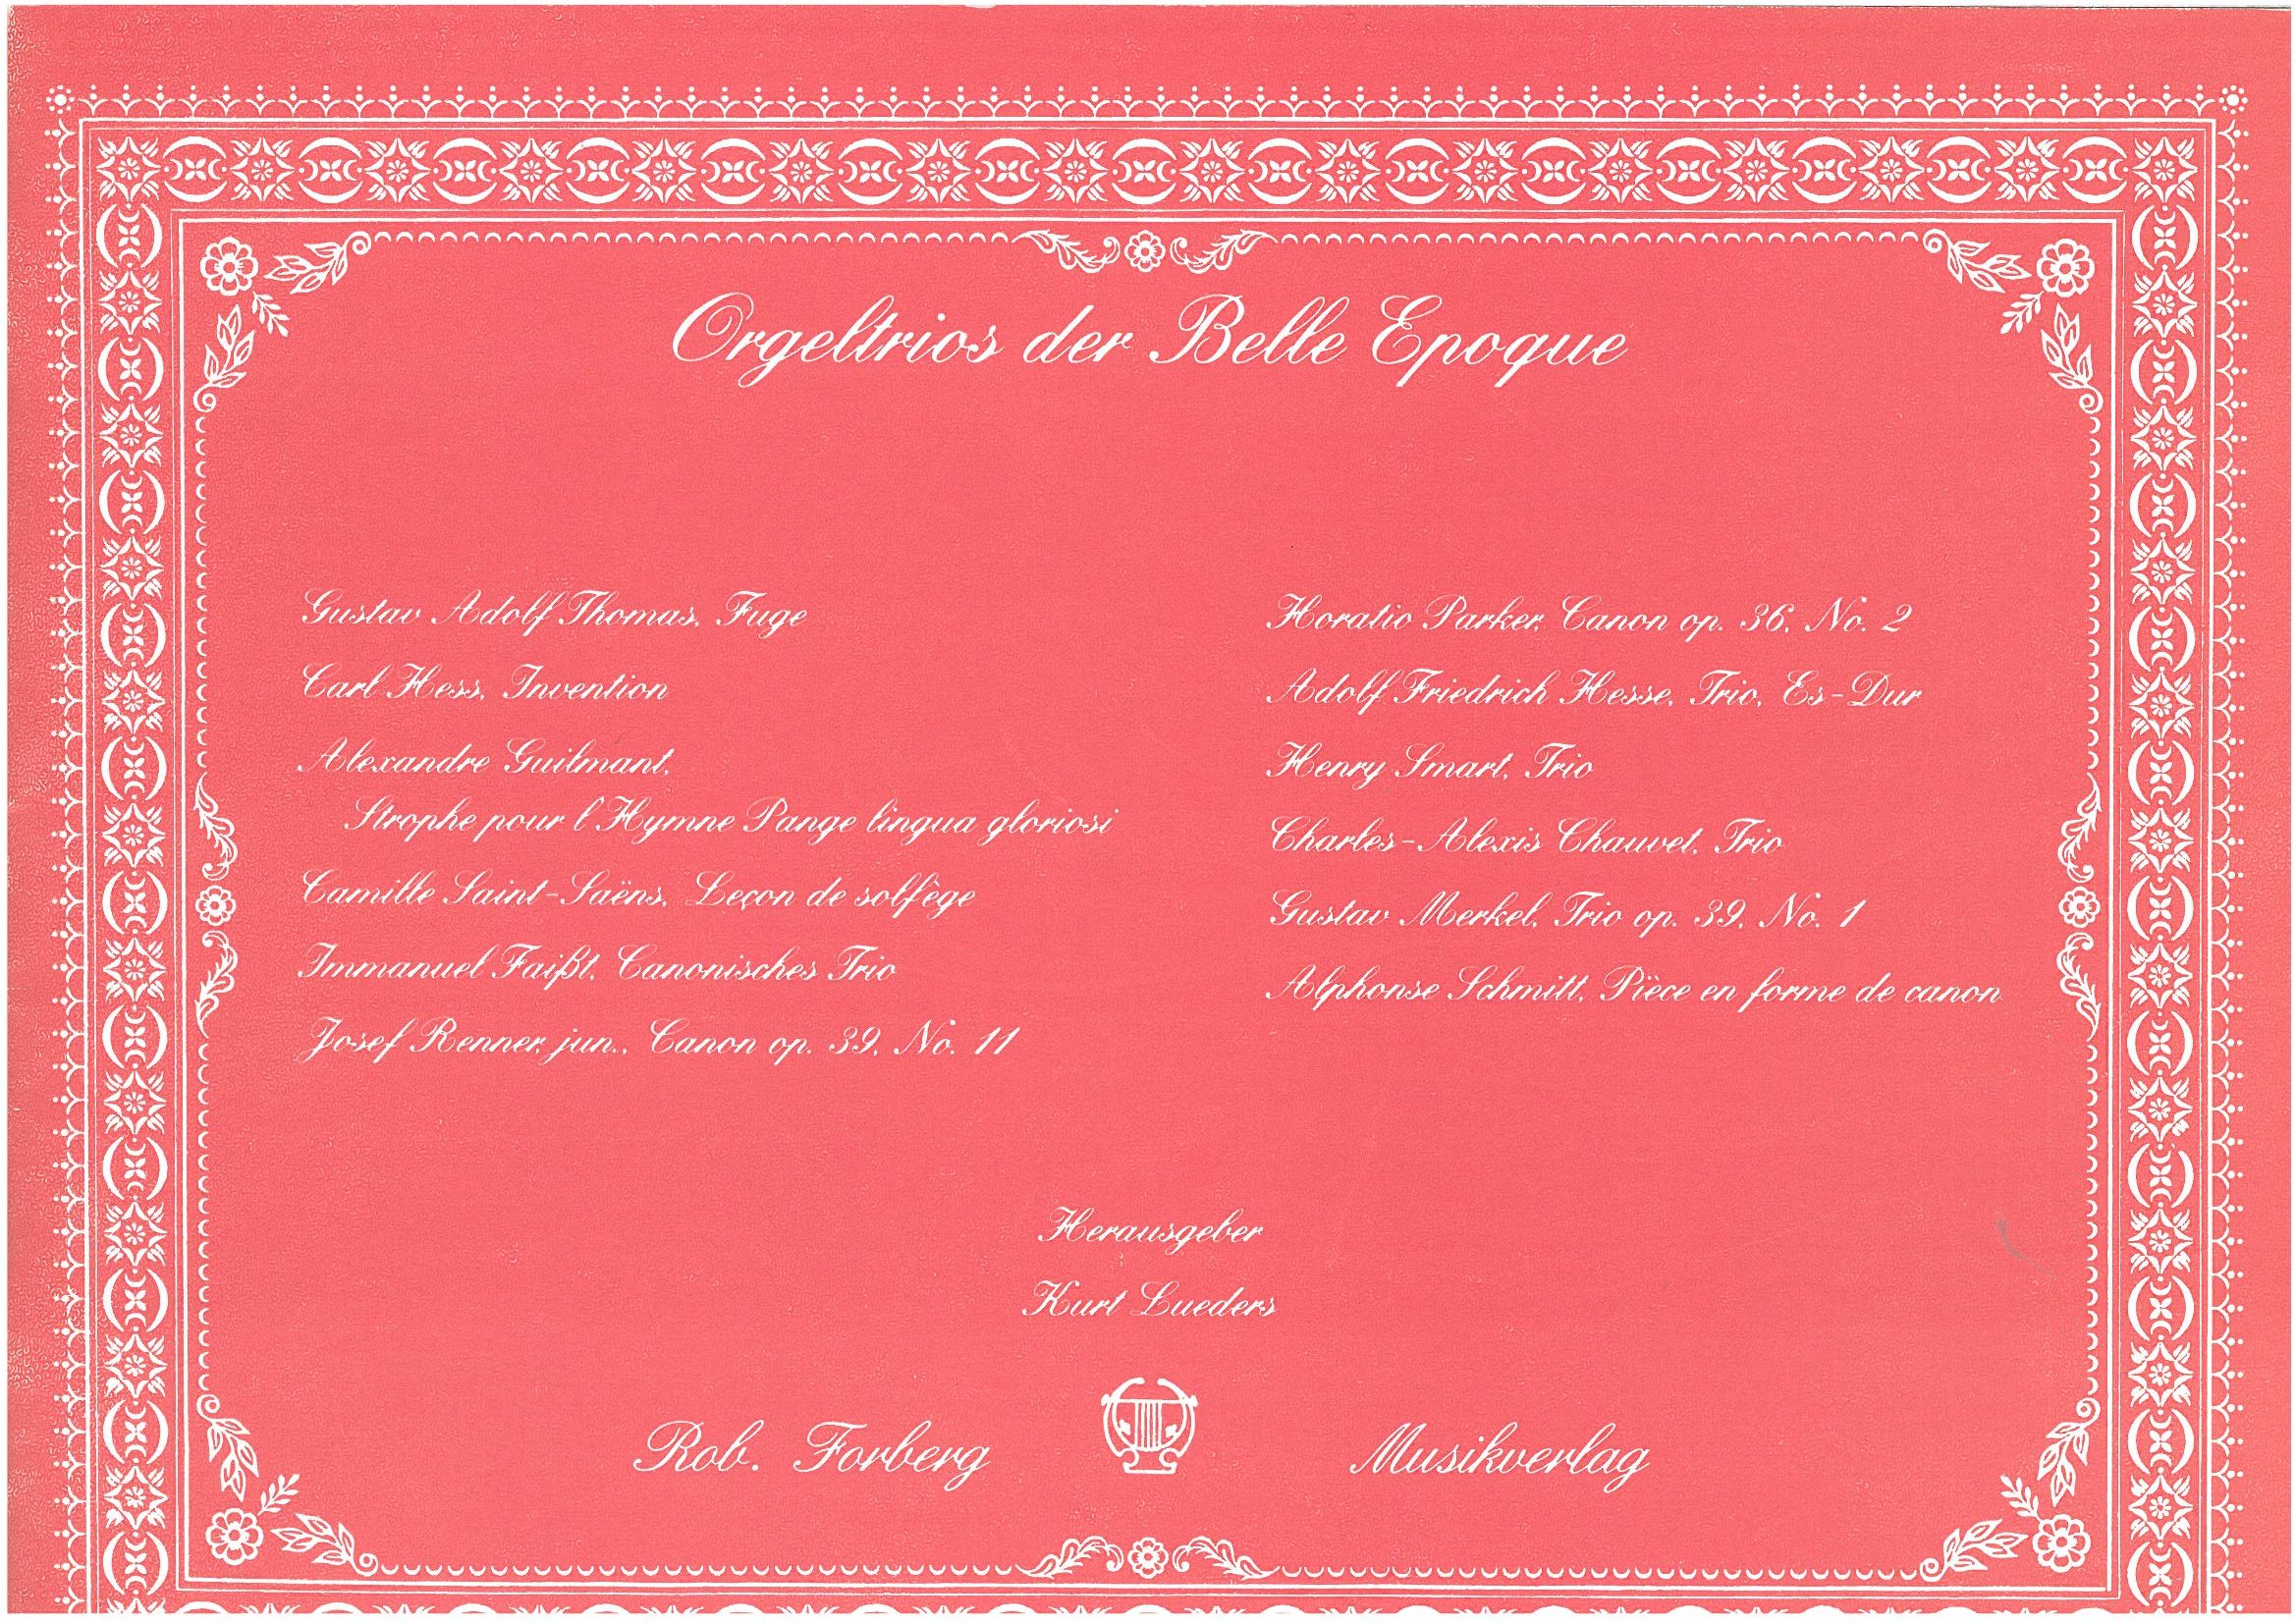 Orgeltrios der Belle Epoque
Gustav Adolf Thomas, Fuge
Carl Hess, Invention
Alexandre Guilmant,
Strophe pour l'Hymne Pange lingua gloriosi
Camille Saint-Saëns, Leçon de solfège
Immanuel Faißt, Canonisches Trio
Josef Renner, jun., Canon op. 39, No. 11
Horatio Parker, Canon op. 36, No. 2
Adolf Friedrich Hesse, Trio, Es-Dur
Henry Smart, Trio
Charles-Alexis Chauvet, Trio
Gustav Merkel, Trio op. 39, No. 1
Alphonse Schmitt, Pièce en forme de canon
Herausgeber
Kurt Lueders
Rob. Forberg Musikverlag